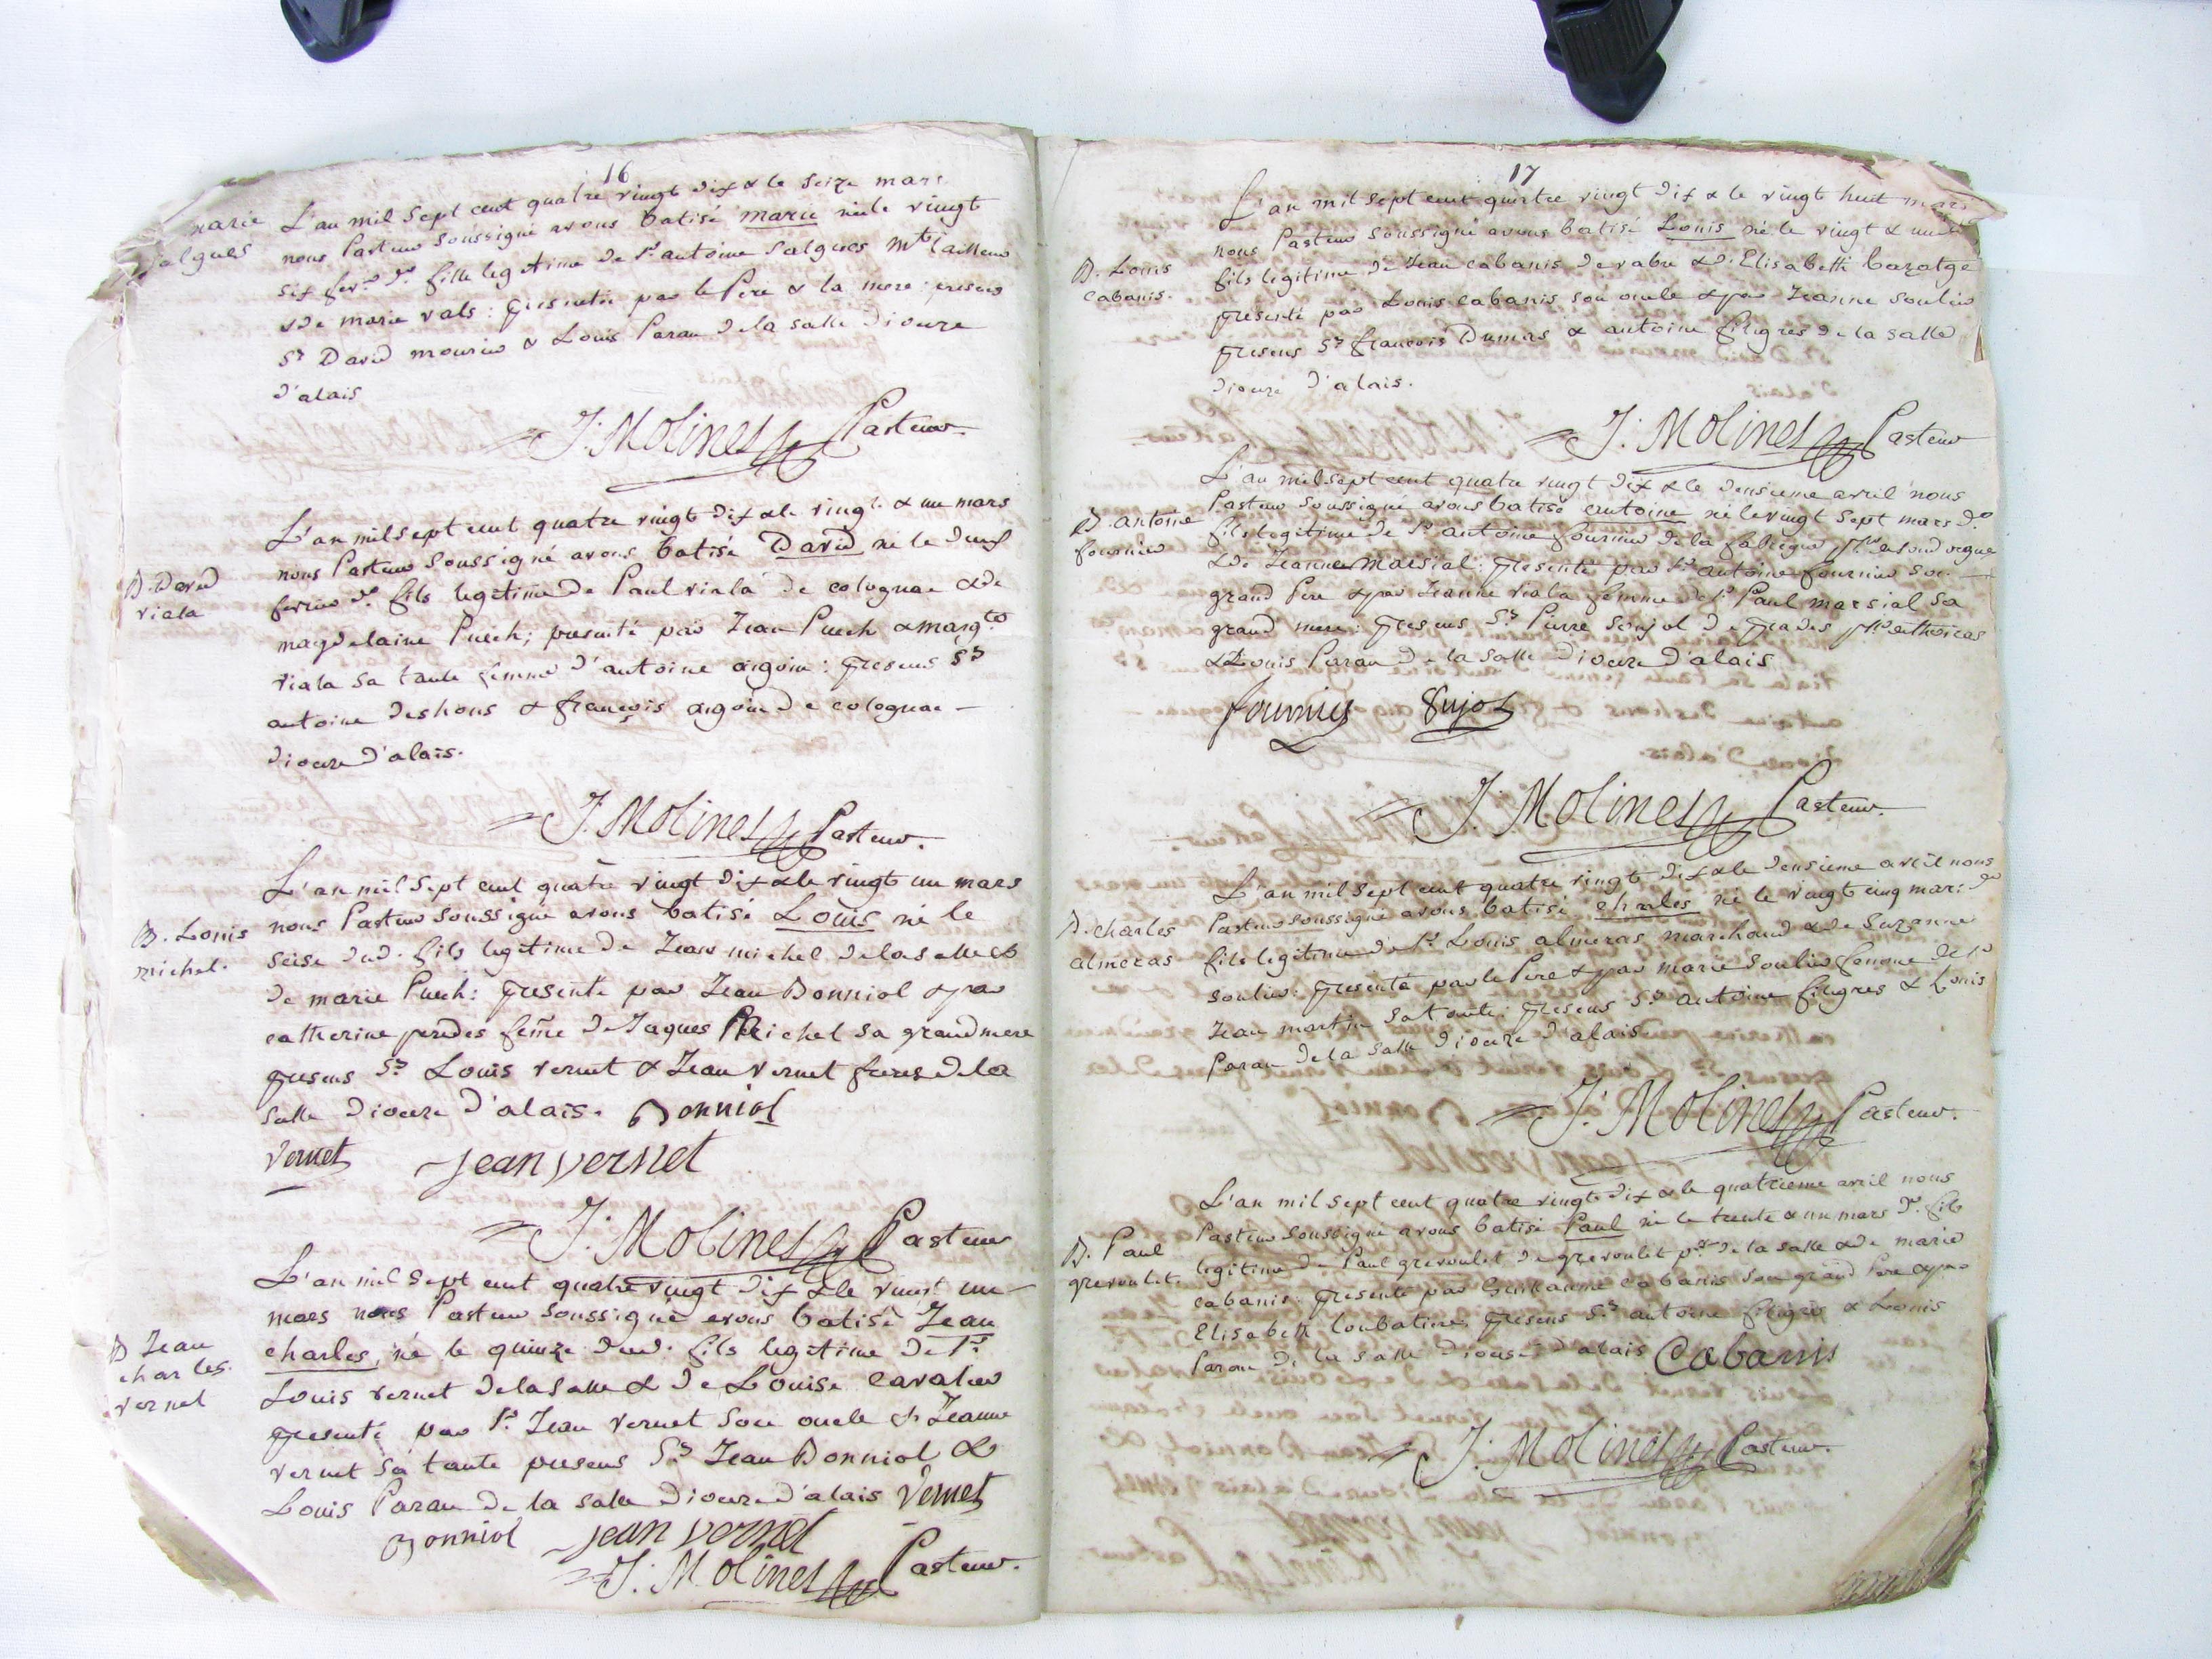 16
marie
salgues
L'an mil sept cent quatre vingt dix & le seize mars
nous Pasteur soussigné avons batisé marie née le vingt
six fer. d.º fille legitime de Sr. antoine Salgues mtre tailleur
& de marie vals : presentée par le Pere & la mere : presens
Srs David mourier & Louis Paran de la salle diocese
d'alais
J: Molines Pasteur.
B. David
viala
L'an mil sept cent quatre vingt dix & le vingt & un mars
nous Pasteur soussigné avons batisé David né le
fevrier d.º fils legitime de Paul viala de colognac & de
magdelaine Puech; presenté par Jean Puech & margte
viala sa tante femme d'antoine aigoin : presens Srs
antoine deshons & françois aigoin de colognac
diocese d'alais.
J. Molines Pasteur.
B. Louis
michel.
L'an mil sept cent quatre vingt dix & le vingt un mars
nous Pasteur soussigné avons batisé Louis né le
seise dud. fils legitime de Jean michel de la salle &
de marie Puech : presenté par Jean Bonniol & par
catherine femme de Jaques Michel sa grand mere
presens Srs Louis vernet & Jean vernet freres de la
salle diocese d'alais. Bonniol
Vernet jean vernet
J. Molines Pasteur
B Jean
charles
vernet
L'an mil sept cent quatre vingt dix & le vingt un
mars nous Pasteur soussigné avons batisé Jean
charles, né le quinze dud. fils legitime de Sr.
Louis vernet de la salle & de Louise cavalier
presenté par Sr. Jean vernet son oncle & Jeanne
vernet sa tante presens Srs Jean Bonniol &
Louis Paran de la salle diocese d'alais Vernet
Bonniol jean vernet
J. Molines Pasteur.
17
B. Louis
cabanis.
L'an mil sept cent quatre vingt dix & le vingt huit mars
nous Pasteur soussigné avons batisé Louis né le vingt & un
fils legitime de Jean cabanis de vabre & d'Elisabeth
presenté par Louis cabanis son oncle & par Jeanne soulier
presens Srs françois Dumas & antoine filigres de la salle
diocese d'alais.
J. Molines Pasteur
B. antoine
fournier
L'an mil sept cent quatre vingt dix & le deusieme avril nous
Pasteur soussigné avons batisé antoine né le vingt sept mars d.º
fils legitime de Sr. antoine fournier de la fabregue
& de Jeanne Marsial : presenté par Sr. antoine fournier son
grand Pere & par Jeanne viala femme de Sr. Paul marsial sa
grand mere : presens Srs Pierre Soujol de
& Louis Paran de la salle diocese d'alais
fournier Sujol
J. Molines Pasteur.
B. charles
almeras
L'an mil sept cent quatre vingt dix & le deusieme avril nous
Pasteur soussigné avons batisé charles né le vingt cinq mars d.º
fils legitime de Sr. Louis almeras marchand & de Suzanne
soulier : presenté par le Pere & par marie soulier femme de Sr
Jean martin sa tante : presens Srs antoine filigres & Louis
Paran de la salle diocese d'alais
J. Molines Pasteur.
B. Paul
grevoulet.
L'an mil sept cent quatre vingt dix & le quatrieme avril nous
Pasteur soussigné avons batisé Paul né le trente & un mars d.º fils
legitime de Paul grevoulet de grevoulet psse de la salle & de marie
cabanis : presenté par Guillaume cabanis son grand Pere & par
Elisabeth loubatiere, presens Srs antoine filigres & Louis
Paran de la salle diocese d'alais Cabanis
J. Molines Pasteur.